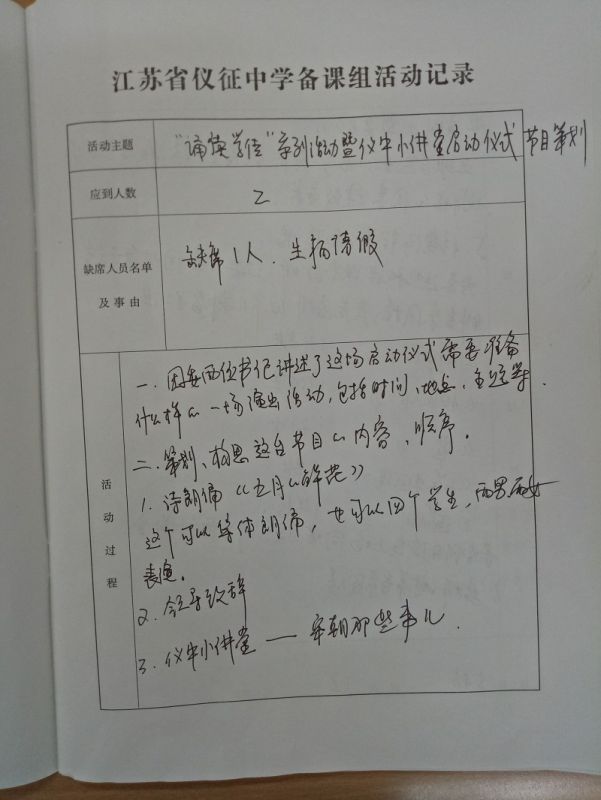 江苏省仪征中学备课组活动记录
活动主题 “诵英学传”系列活动暨仪中小讲堂启动仪式 节目策划
应到人数 乙
缺席人员名单
及事由
缺席1人、生病请假
活动过程
一、团委两位书记讲述了这场启动仪式需要准备
什么样的一场演出活动,包括时间、地点、主题等.
二、策划、构思这台节目的内容、顺序.
1、诗朗诵《五月的鲜花》
这个可以集体朗诵,也可以四个学生,两男两女
表演.
2、领导致辞
3、仪中小讲堂——宋朝那些事儿.